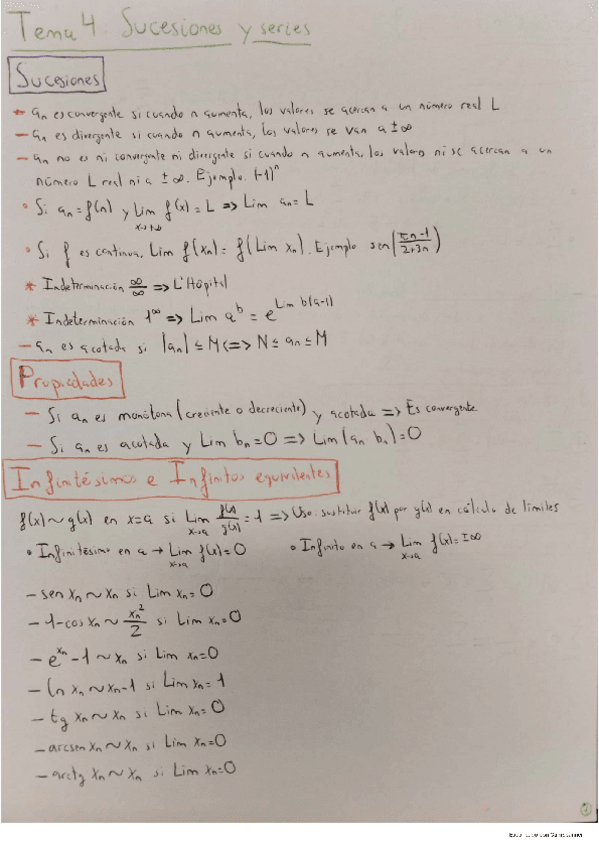 Tema 4 Sucesiones y series
Sucesiones
- an es convergente si cuando n aumenta, los valores se acercan a un número real L
- an es divergente si cuando n aumenta, los valores se van a ±∞
- an no es ni convergente ni divergente si cuando n aumenta, los valores ni se acercan a un
número L real ni a ±∞. Ejemplo. (-1)^n
• Si an = f(n) y Lim x→+∞ f(x) = L => Lim an = L
• Si f es continua, Lim f(xn) = f(Lim xn). Ejemplo sen((πn-1)/(2+3n))
* Indeterminación ∞/∞ => L'Hôpital
* Indeterminación 1^∞ => Lim a^b = e^(Lim b(a-1))
- an es acotada si |an| ≤ M <=> N ≤ an ≤ M
Propiedades
- Si an es monótona (creciente o decreciente) y acotada => Es convergente
- Si an es acotada y Lim bn = 0 => Lim (an bn) = 0
Infinitésimos e Infinitos equivalentes
f(x) ~ g(x) en x=a si Lim x→a f(x)/g(x) = 1 => Uso: sustituir f(x) por g(x) en cálculo de límites
• Infinitésimo en a → Lim x→a f(x) = 0 • Infinito en a → Lim x→a f(x) = ±∞
- sen xn ~ xn si Lim xn = 0
- 1-cos xn ~ xn²/2 si Lim xn = 0
- e^xn - 1 ~ xn si Lim xn = 0
- ln xn ~ xn-1 si Lim xn = 1
- tg xn ~ xn si Lim xn = 0
- arcsen xn ~ xn si Lim xn = 0
- arctg xn ~ xn si Lim xn = 0
1